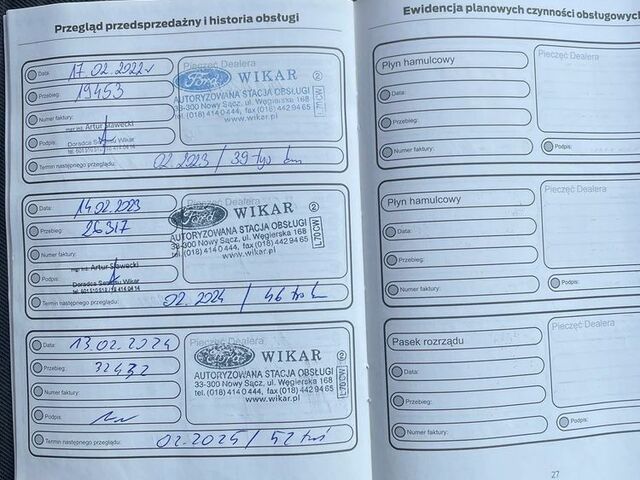 Przegląd przedsprzedażny i historia obsługi
Data: 17.02.2022r
Przebieg: 19453
Numer faktury:
mgr inż. Artur Sławecki
Podpis: Doradca Serwisu Wikar
Termin następnego przeglądu: 02.2023 / 39 tyś km
Pieczęć Dealera
Ford WIKAR 2
AUTORYZOWANA STACJA OBSŁUGI
33-300 Nowy Sącz, ul. Węgierska 168
tel. (018) 414 0 444, fax (018) 442 94 65
www.wikar.pl
L70CW
Data: 14.02.2023
Przebieg: 26317
Numer faktury:
mgr inż. Artur Sławecki
Podpis: Doradca Serwisu Wikar
Termin następnego przeglądu: 02.2024 / 46 tyś km
Pieczęć Dealera
Ford WIKAR 2
AUTORYZOWANA STACJA OBSŁUGI
33-300 Nowy Sącz, ul. Węgierska 168
tel. (018) 414 0 444, fax (018) 442 94 65
www.wikar.pl
L70CW
Data: 13.02.2024
Przebieg:
Numer faktury:
Podpis:
Termin następnego przeglądu: 02.2025 / 52 tyś
Pieczęć Dealera
Ford WIKAR 2
AUTORYZOWANA STACJA OBSŁUGI
33-300 Nowy Sącz, ul. Węgierska 168
tel. (018) 414 0 444, fax (018) 442 94 65
www.wikar.pl
L70CW
Ewidencja planowych czynności obsługowych
Płyn hamulcowy
Pieczęć Dealera
Data:
Przebieg:
Numer faktury:
Podpis:
Płyn hamulcowy
Pieczęć Dealera
Data:
Przebieg:
Numer faktury:
Podpis:
Pasek rozrządu
Pieczęć Dealera
Data:
Przebieg:
Numer faktury:
Podpis:
27